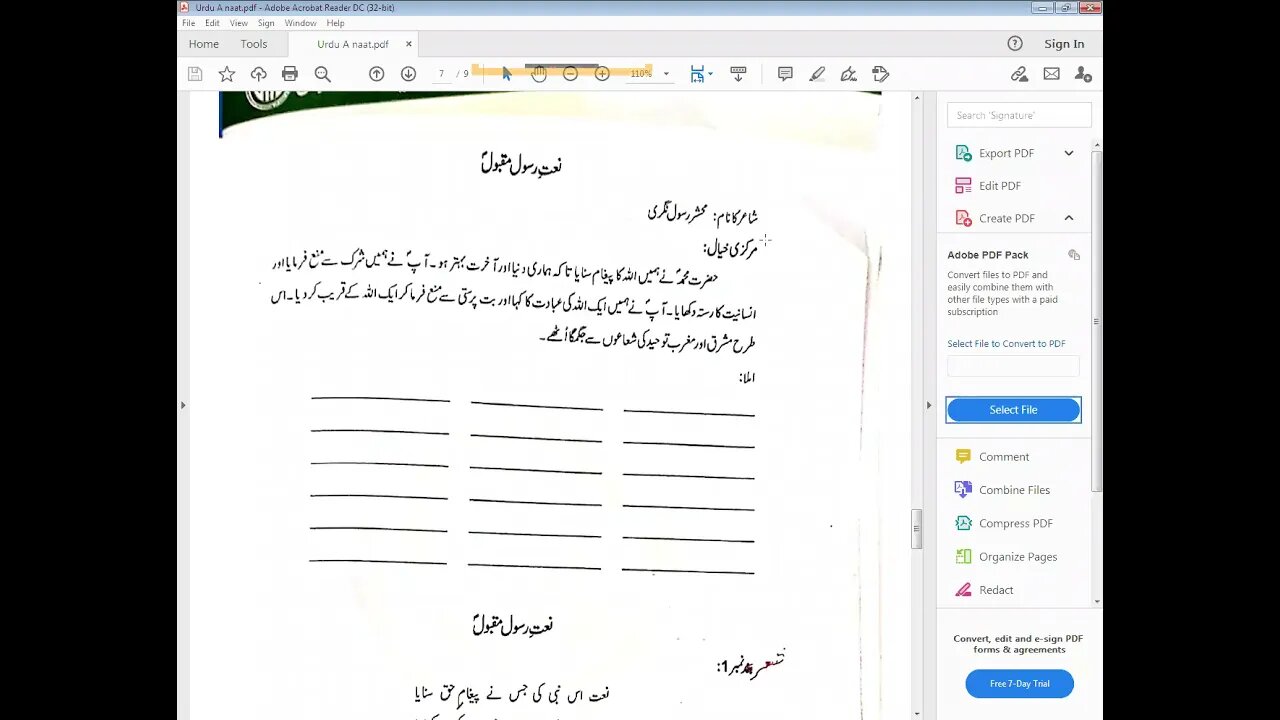 Urdu A naat.pdf - Adobe Acrobat Reader DC (32-bit)
File Edit View Sign Window Help
Home Tools Urdu A naat.pdf × Sign In
7 / 9 110%
نعتِ رسول مقبولؐ
شاعر کا نام: محشر رسول نگری
مرکزی خیال:
حضرت محمدؐ نے ہمیں اللہ کا پیغام سنایا تاکہ ہماری دنیا اور آخرت بہتر ہو۔ آپؐ نے ہمیں شرک سے منع فرمایا اور
انسانیت کا رستہ دکھایا۔ آپؐ نے ہمیں ایک اللہ کی عبادت کا کہا اور بت پرستی سے منع فرما کر ایک اللہ کے قریب کر دیا۔ اس
طرح مشرق اور مغرب توحید کی شعاعوں سے جگمگا اُٹھے۔
املا:
نعتِ رسول مقبولؐ
نمبر 1:
نعت اس نبی کی جس نے پیغامِ حق سنایا
Search 'Signature'
Export PDF
Edit PDF
Create PDF
Adobe PDF Pack
Convert files to PDF and
easily combine them with
other file types with a paid
subscription
Select File to Convert to PDF
Select File
Comment
Combine Files
Compress PDF
Organize Pages
Redact
Convert, edit and e-sign PDF
forms & agreements
Free 7-Day Trial